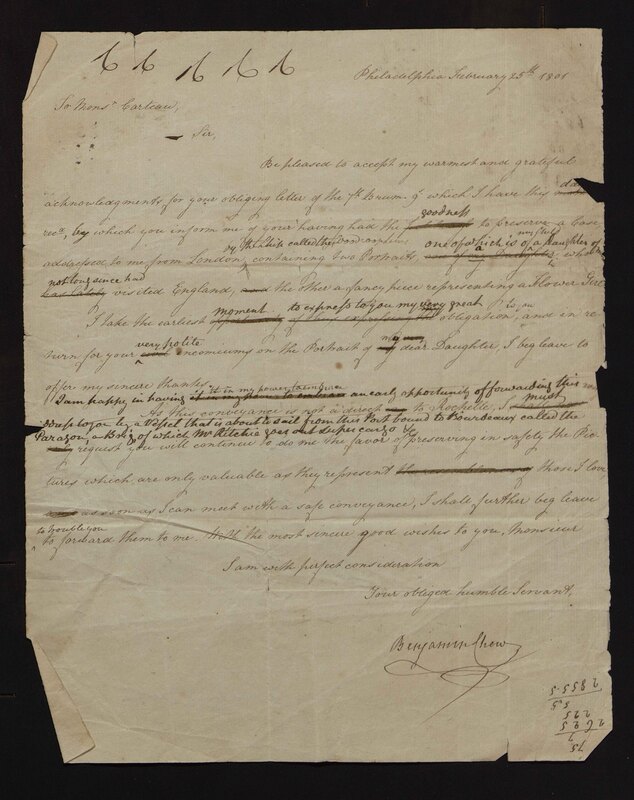 Philadelphia February 25th 1801
To Monsr Carteau,
Sir,
Be pleased to accept my warmest and grateful
acknowledgments for your obliging letter of the 7th Brum. which I have this day
goodness
recd, by which you inform me of your having had the to preserve a Case
by the ship called the
addressed to me from London, containing two Portraits one of which is of a daughter of
not long since had
visited England, and the other a fancy piece representing a Flower Girl
moment to express to you my very great
I take the earliest obligation, and in re-
very polite my
turn for your encomiums on the Portrait of dear Daughter, I beg leave to
offer my sincere thanks.
it in my power
I am happy in having an early opportunity of forwarding this
As this conveyance is not a direct to Rochelle, I must
to you by a Vessel that is about to sail from this Port bound to Bourdeaux called the
Paragon, a Bolg of which Mr Ritchie goes out supercargo
request you will continue to do me the favor of preserving in safety the Pic-
tures which are only valuable as they represent those I love
as soon as I can meet with a safe conveyance, I shall further beg leave
to trouble you
to forward them to me. With the most sincere good wishes to you, Monsieur
I am with perfect consideration
Your obliged humble Servant,
Benjamin Chew